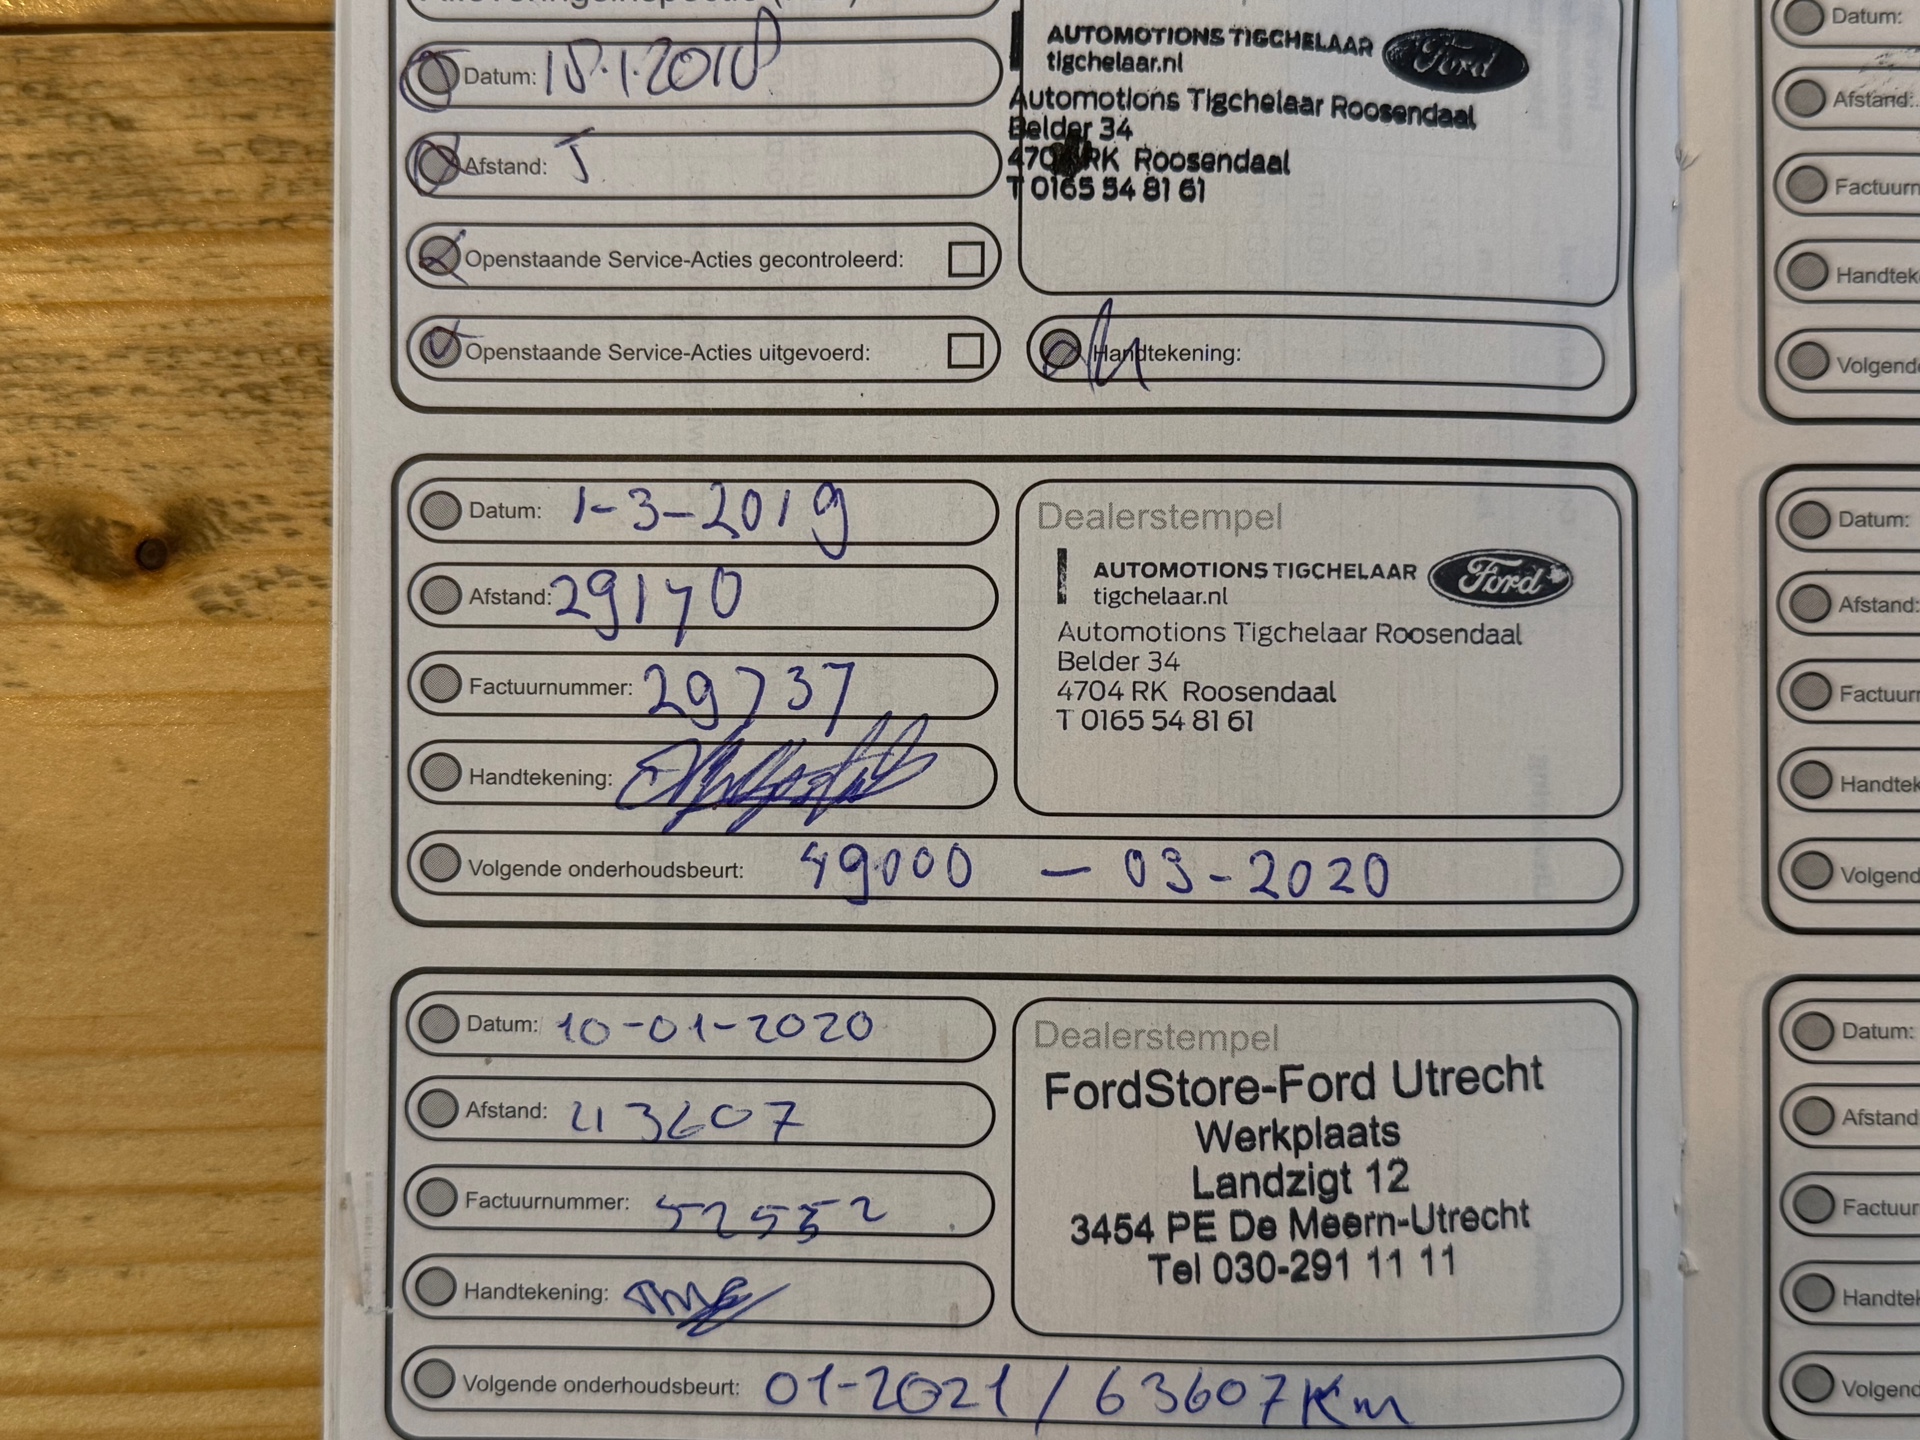 Datum: 18.1.2018
Afstand: 5
Openstaande Service-Acties gecontroleerd:
Openstaande Service-Acties uitgevoerd:
AUTOMOTIONS TIGCHELAAR Ford
tigchelaar.nl
Automotions Tigchelaar Roosendaal
Belder 34
4704 RK Roosendaal
T 0165 54 81 61
Handtekening:
Datum: 1-3-2019
Afstand: 29170
Factuurnummer: 29737
Handtekening:
Dealerstempel
AUTOMOTIONS TIGCHELAAR Ford
tigchelaar.nl
Automotions Tigchelaar Roosendaal
Belder 34
4704 RK Roosendaal
T 0165 54 81 61
Volgende onderhoudsbeurt: 49000 - 03-2020
Datum: 10-01-2020
Afstand: 43607
Factuurnummer: 52552
Handtekening:
Dealerstempel
FordStore-Ford Utrecht
Werkplaats
Landzigt 12
3454 PE De Meern-Utrecht
Tel 030-291 11 11
Volgende onderhoudsbeurt: 01-2021 / 63607 Km
Datum:
Afstand:
Factuurn
Handtek
Volgend
Datum:
Afstand:
Factuur
Handtek
Volgend
Datum:
Afstand
Factuur
Handtek
Volgend